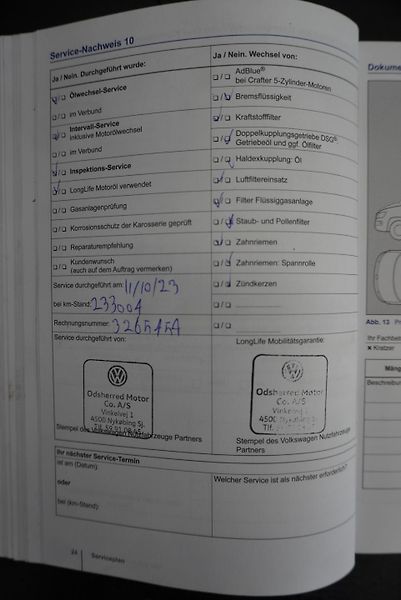 Service-Nachweis 10
Ja / Nein. Durchgeführt wurde:
Ölwechsel-Service
im Verbund
Intervall-Service
inklusive Motorölwechsel
im Verbund
Inspektions-Service
LongLife Motoröl verwendet
Gasanlagenprüfung
Korrosionsschutz der Karosserie geprüft
Reparaturempfehlung
Kundenwunsch
(auch auf dem Auftrag vermerken)
Service durchgeführt am: 11/10/23
bei km-Stand: 233004
Rechnungsnummer:
Service durchgeführt von:
Odsherred Motor
Co. A/S
Vinkelvej 1
4500 Nykøbing Sj.
Stempel des Volkswagen Nutzfahrzeuge Partners
Ja / Nein. Wechsel von:
AdBlue®
bei Crafter 5-Zylinder-Motoren
Bremsflüssigkeit
Kraftstofffilter
Doppelkupplungsgetriebe DSG®:
Getriebeöl und ggf. Ölfilter
Haldexkupplung: Öl
Luftfiltereinsatz
Filter Flüssiggasanlage
Staub- und Pollenfilter
Zahnriemen
Zahnriemen: Spannrolle
Zündkerzen
LongLife Mobilitätsgarantie:
Odsherred Motor
Co. A/S
Vinkelvej 1
4500 Nykøbing Sj.
Stempel des Volkswagen Nutzfahrzeuge
Partners
Ihr nächster Service-Termin
ist am (Datum):
oder
bei (km-Stand):
Welcher Service ist als nächster erforderlich?
24 Serviceplan
Dokume
Abb. 13
Ihr Fachbet
× Kratzer
Mäng
Beschreibun